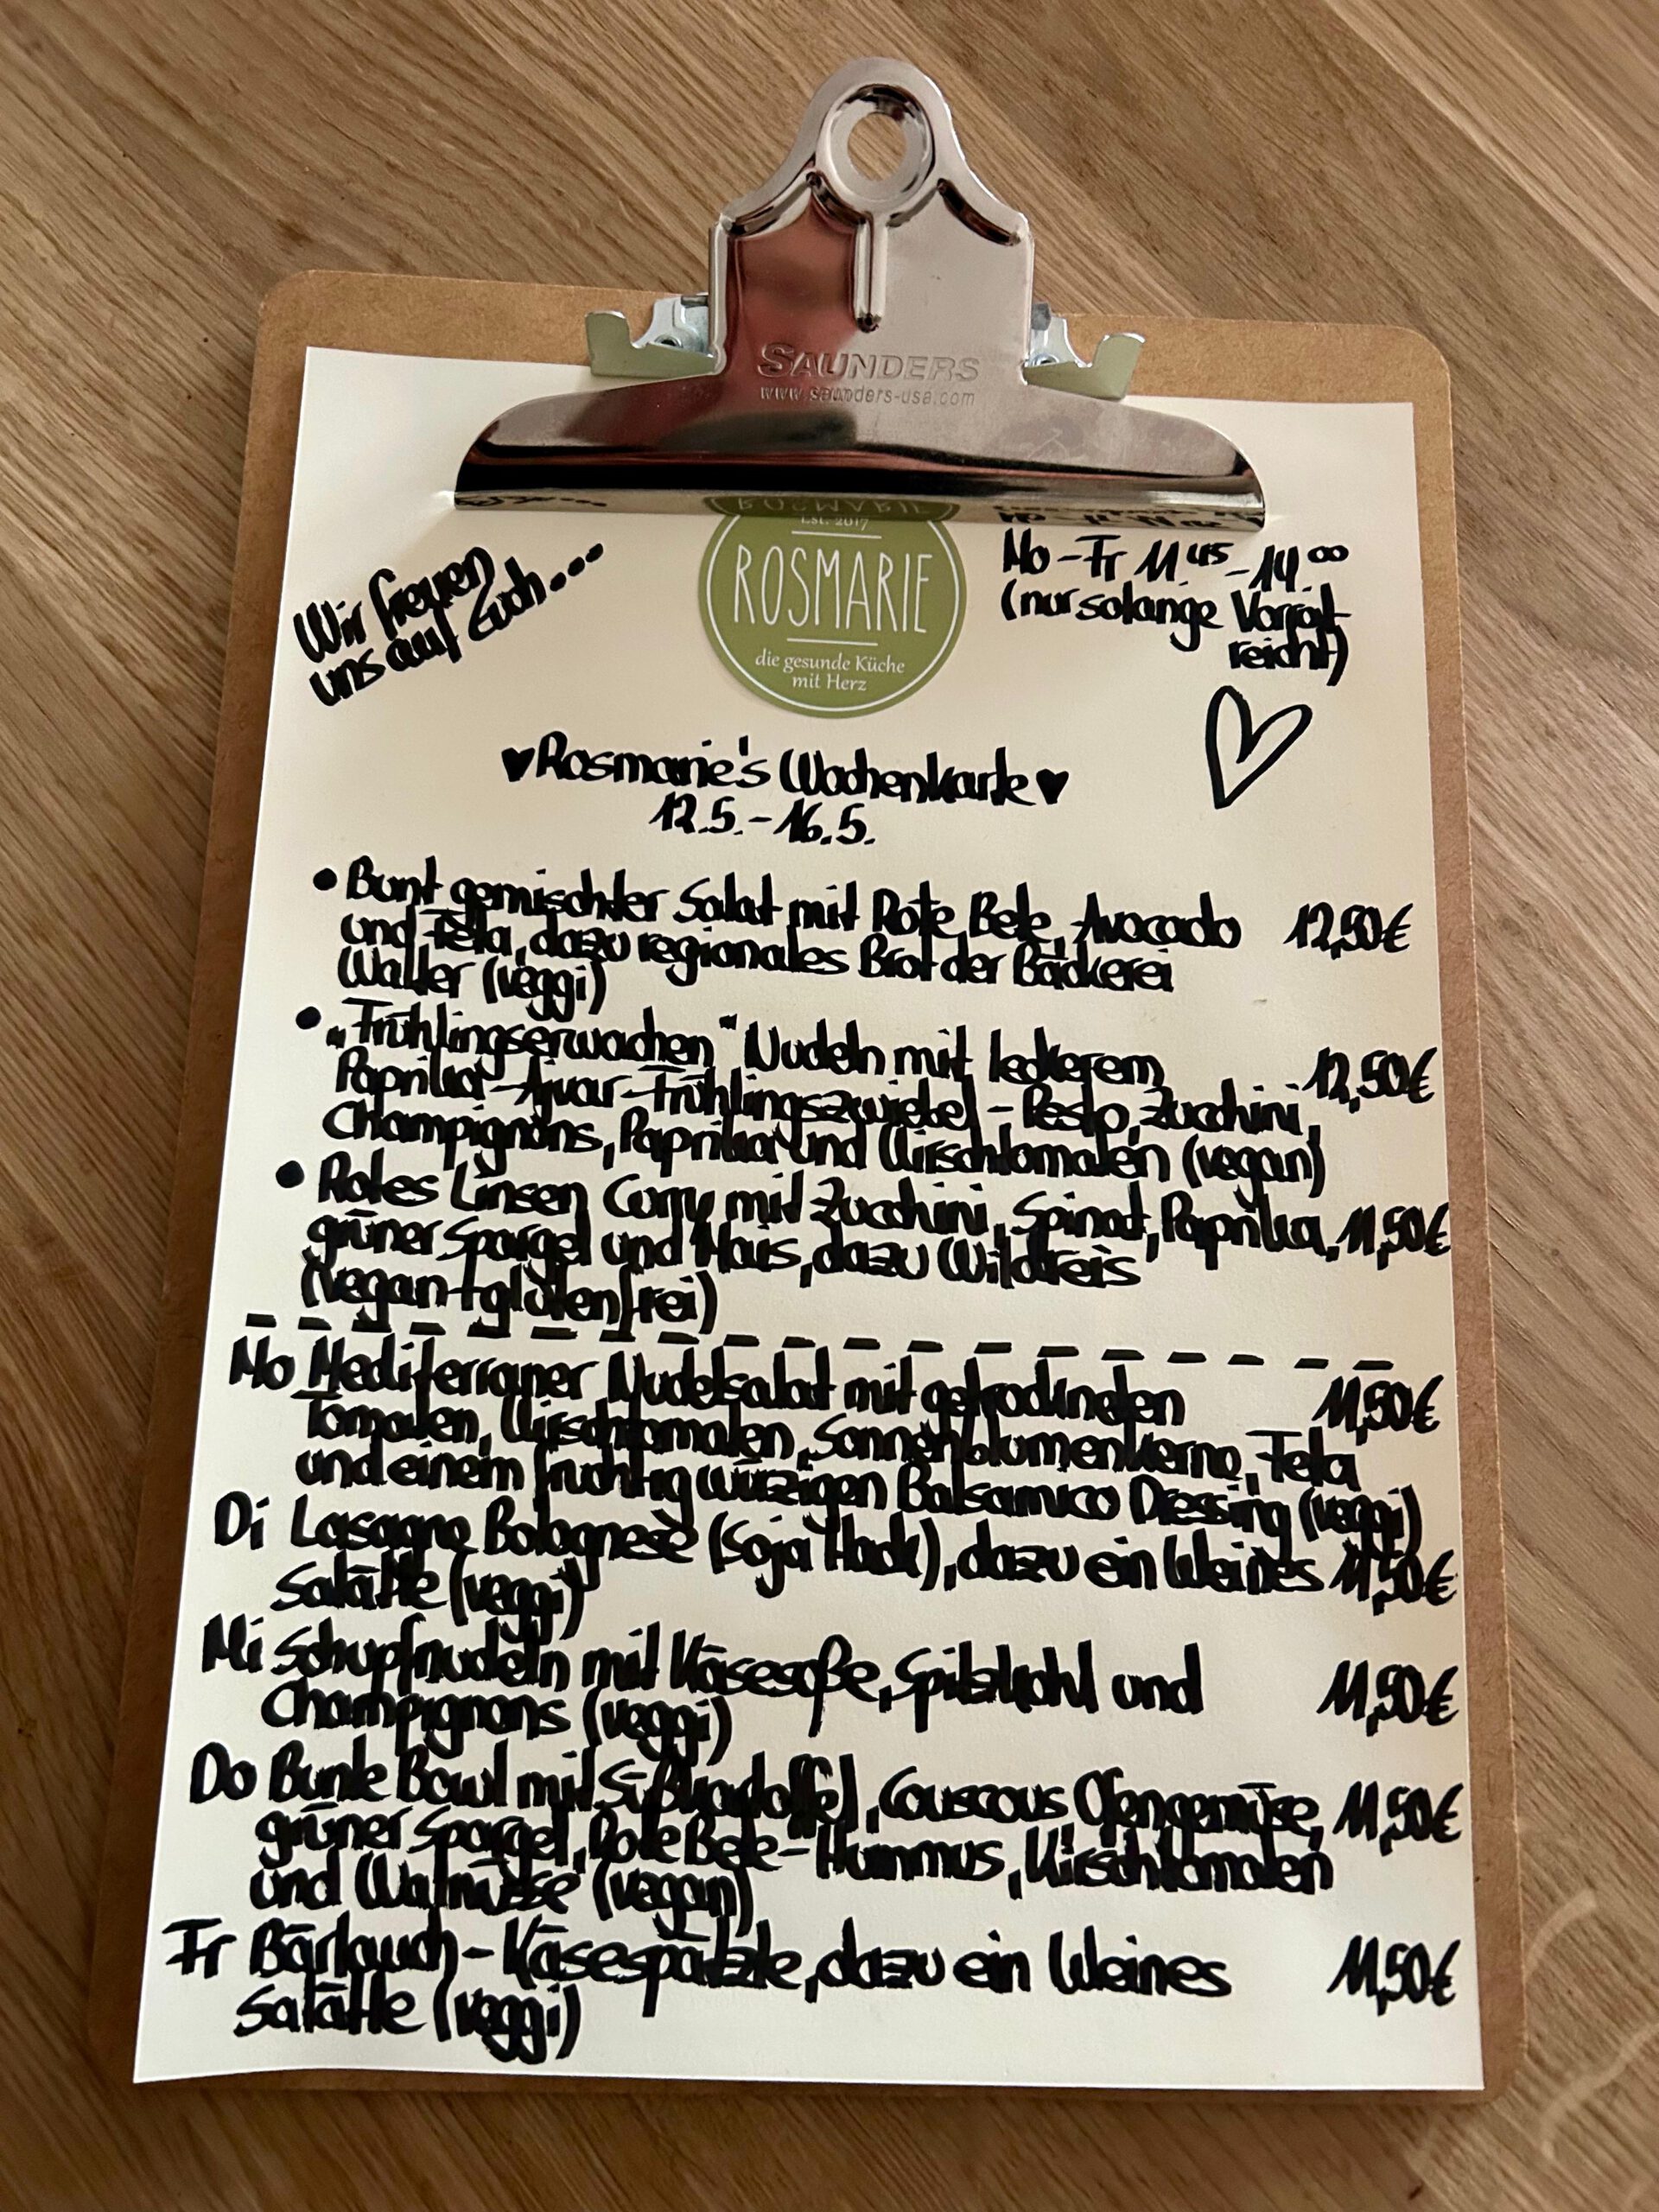 SAUNDERS
www.saunders-usa.com
EST. 2017
ROSMARIE
die gesunde Küche
mit Herz
Wir freuen
uns auf Euch...
Mo-Fr 11.45-14.00
(nur solange Vorrat
reicht)
♥Rosmarie's Wochenkarte♥
12.5.-16.5.
• Bunt gemischter Salat mit Rote Bete, Avocado 12,50€
und Feta, dazu regionales Brot der Bäckerei
Walter (veggi)
• „Frühlingserwachen" Nudeln mit leckerem 12,50€
Paprika-Ajvar-Frühlingszwiebel-Pesto, Zucchini,
Champignons, Paprika und Kirschtomaten (vegan)
• Rotes Linsen Curry mit Zucchini, Spinat, Paprika, 11,50€
grüner Spargel und Mais, dazu Wildreis
(vegan+glutenfrei)
Mo Mediterraner Nudelsalat mit getrockneten 11,50€
Tomaten, Kirschtomaten, Sonnenblumenkerne, Feta
und einem fruchtig würzigen Balsamico Dressing (veggi)
Di Lasagne Bolognese (Soja Hack), dazu ein kleines 11,50€
Salätle (veggi)
Mi Schupfnudeln mit Käsesoße, Spitzkohl und 11,50€
Champignons (veggi)
Do Bunte Bowl mit Süßkartoffel, Couscous Ofengemüse, 11,50€
grüner Spargel, Rote Bete-Hummus, Kirschtomaten
und Walnüsse (vegan)
Fr Bärlauch-Käsespätzle, dazu ein kleines 11,50€
Salätle (veggi)